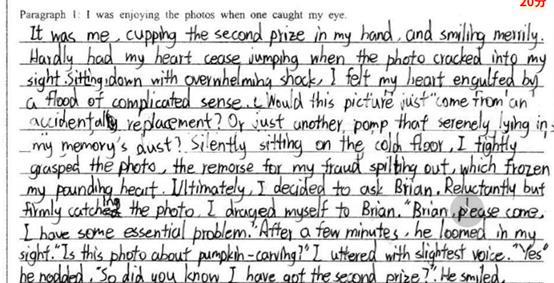 20分
Paragraph 1: I was enjoying the photos when one caught my eye.
It was me, cupping the second prize in my hand, and smiling merrily.
Hardly had my heart cease jumping when the photo cracked into my
sight. Sitting down with overwhelming shock, I felt my heart engulfed by
a flood of complicated sense. Would this picture just "come from" an
accidentally replacement? Or just another pomp that serenely lying in
my memory's dust? Silently sitting on the cold floor, I tightly
grasped the photo, the remorse for my fraud spilting out, which frozen
my pounding heart. Ultimately, I decided to ask Brian. Reluctantly but
firmly catching the photo, I draged myself to Brian. "Brian, please come,
I have some essential problem." After a few minutes, he loomed in my
sight. "Is this photo about pumpkin-carving?" I uttered with slightest voice. "Yes"
he nodded, "So did you know I have got the second prize?". He smiled,